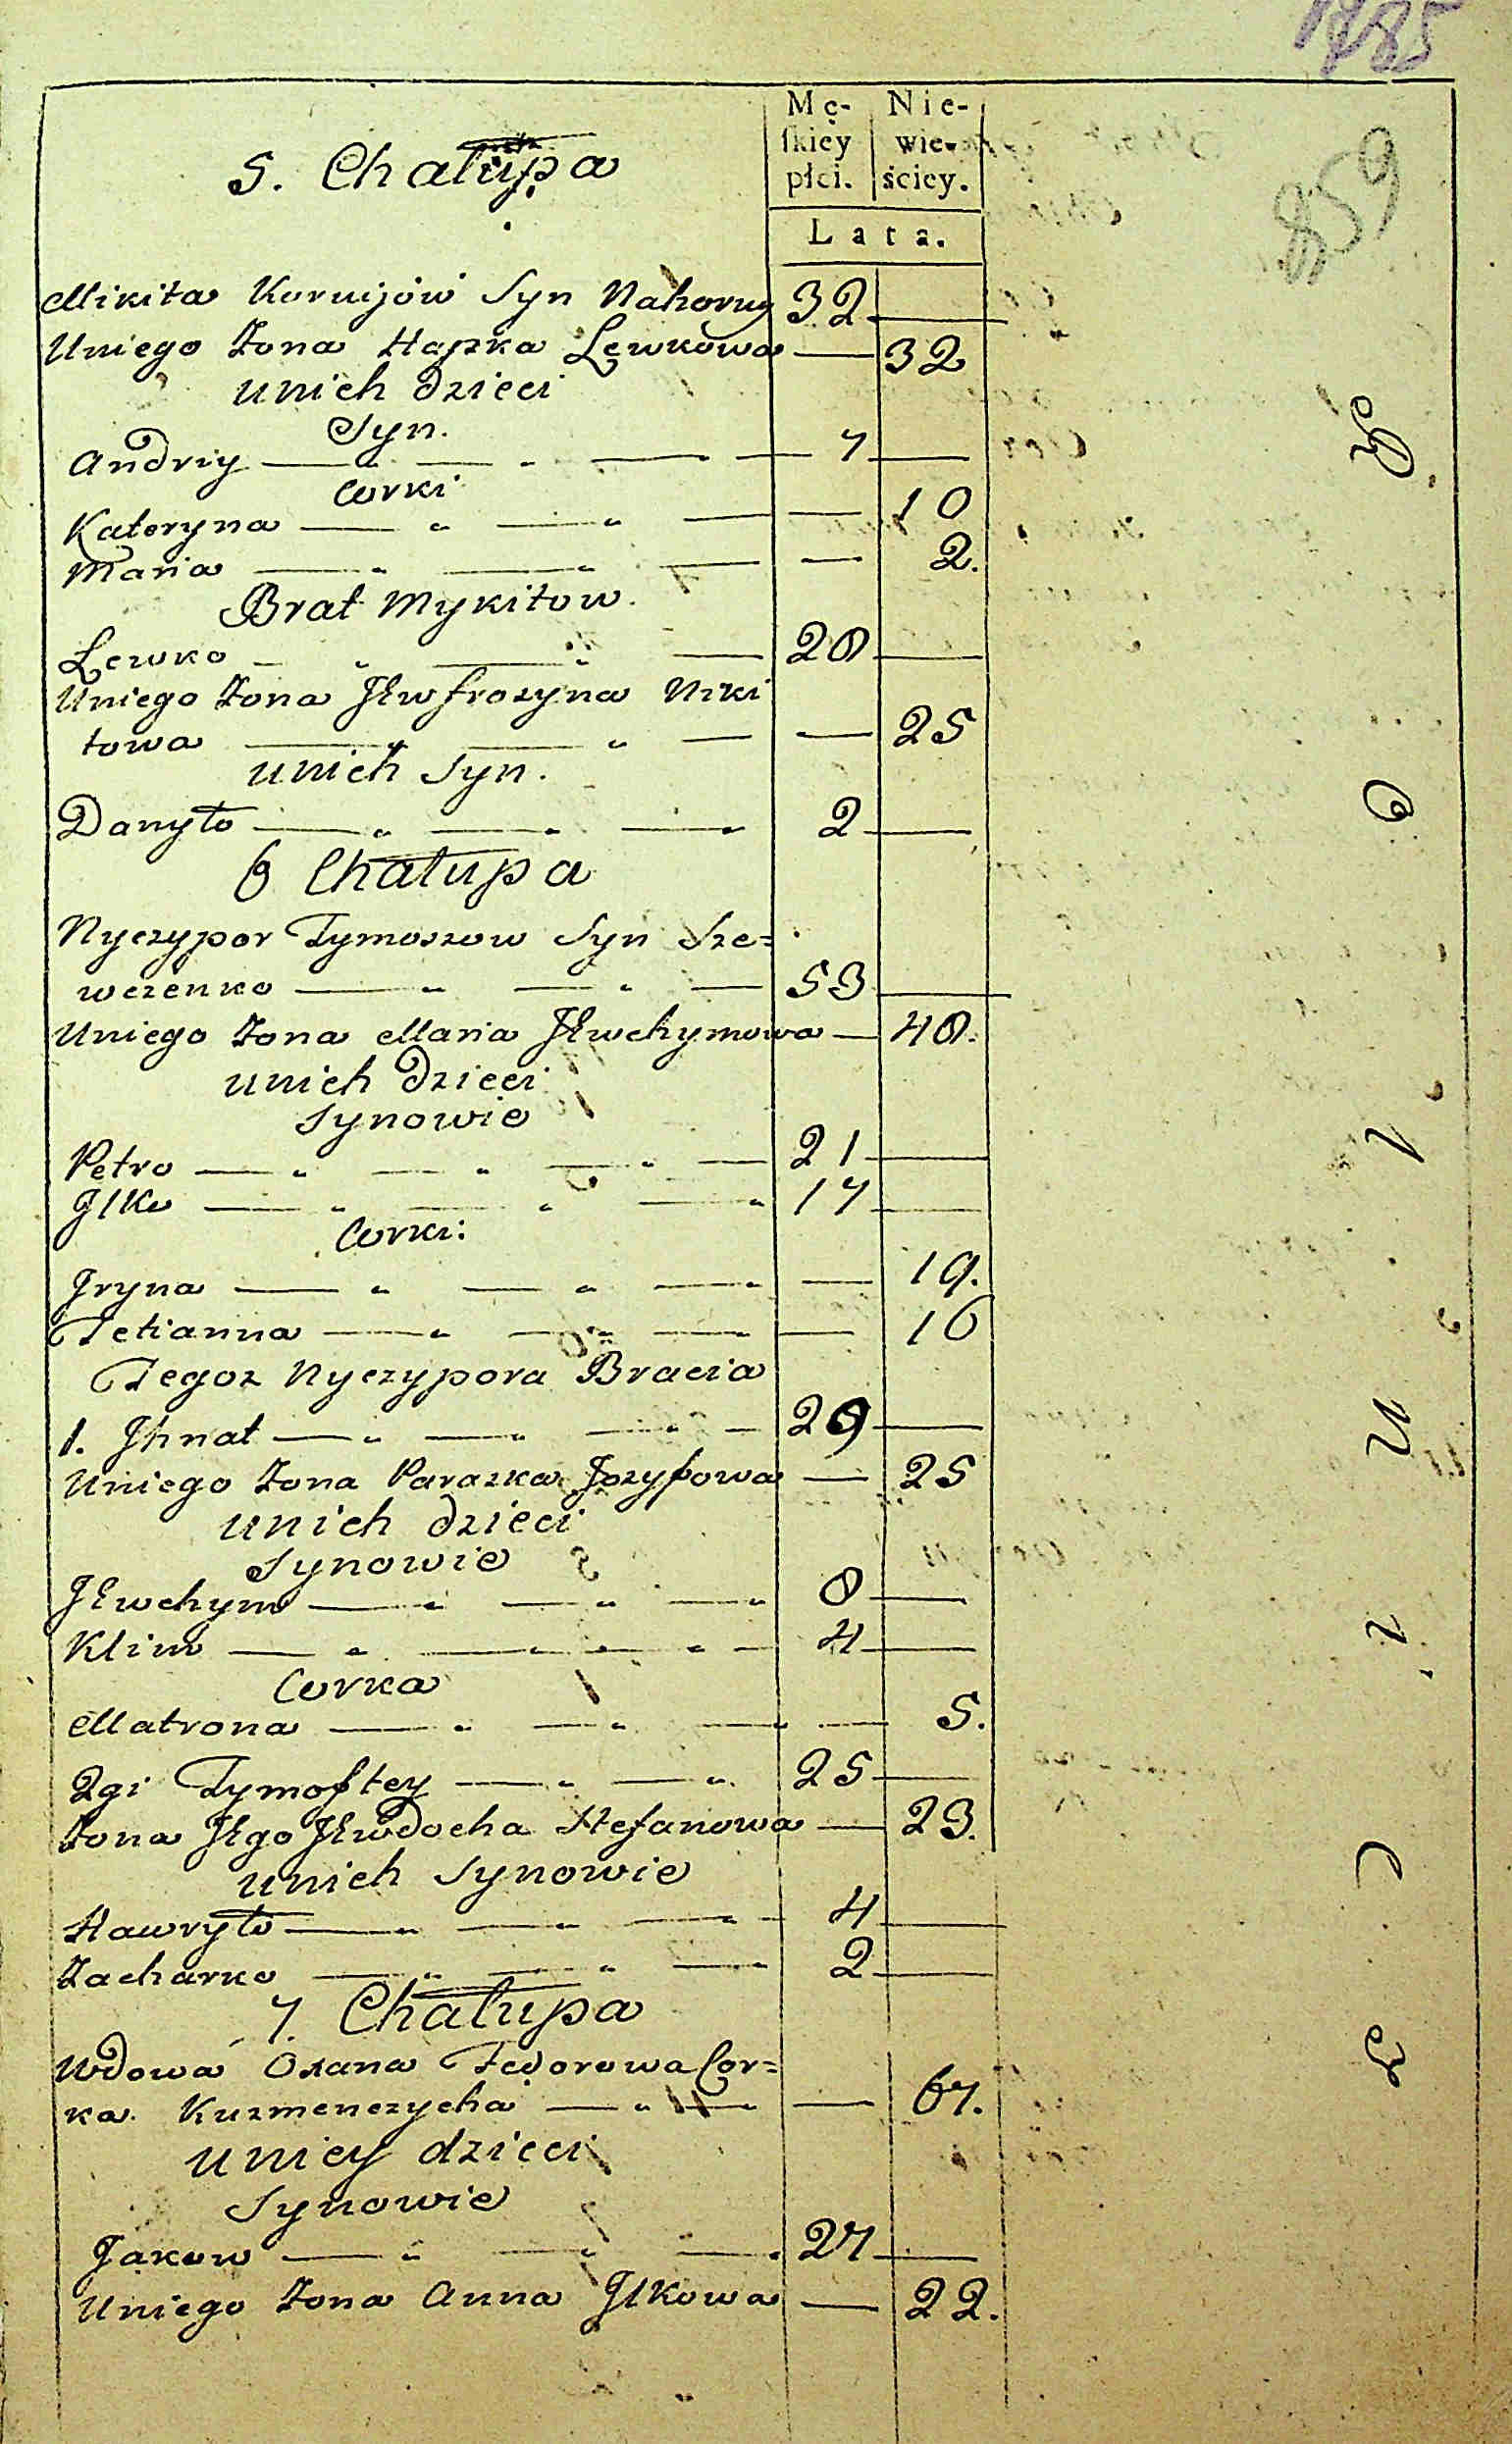 1785
859
Mę- Nie-
skiey wie-
płci. ściey.
Lata.
5. Chałupa
Mikita Kornijów Syn Nahorny 32 —
Uniego Zona Hapka Lewkowa — 32
unich dzieci
Syn.
Andriy — „ — „ — 7 —
Corki
Kateryna — „ — „ — — 10
Maria — „ — „ — — 2.
Brat Mykitow.
Lewko — „ — „ — 28 —
Uniego Zona Jewfrozyna Niki
towa — „ — „ — — 25
unich Syn.
Danyło — „ — „ — „ 2 —
6 Chałupa
Nyczypor Tymoszow Syn Sze=
wczenko — „ — „ — 53 —
Uniego Zona Maria Jewchymowa — 48.
unich dzieci
Synowie
Petro — „ — „ — „ — 21 —
Jlko — „ — „ — „ 17 —
Corki:
Jryna — „ — „ — „ — 19.
Tetianna — „ — „ — „ — 16
Tegoz Nyczypora Bracia
1. Jhnat — „ — „ — „ — 29 —
Uniego Zona Paraska Jozyfowa — 25
unich dzieci
Synowie
Jewchym — „ — „ — „ 8 —
Klim — „ — „ — „ — 4 —
Corka
Matrona — „ — „ — „ — 5.
2gi Tymoftey — „ — „ 25 —
Zona Jego Jewdocha Stefanowa — 23.
unich Synowie
Hawryło — „ — „ — „ 4 —
Zacharko — „ — „ — 2 —
7. Chałupa
Wdowa Oxana Fedorowa Cor=
ka Kuzmenczycha — „ — — 67.
uniey dzieci
Synowie
Jakow — „ — „ — „ 27 —
Uniego Zona Anna Jlkowa — 22.